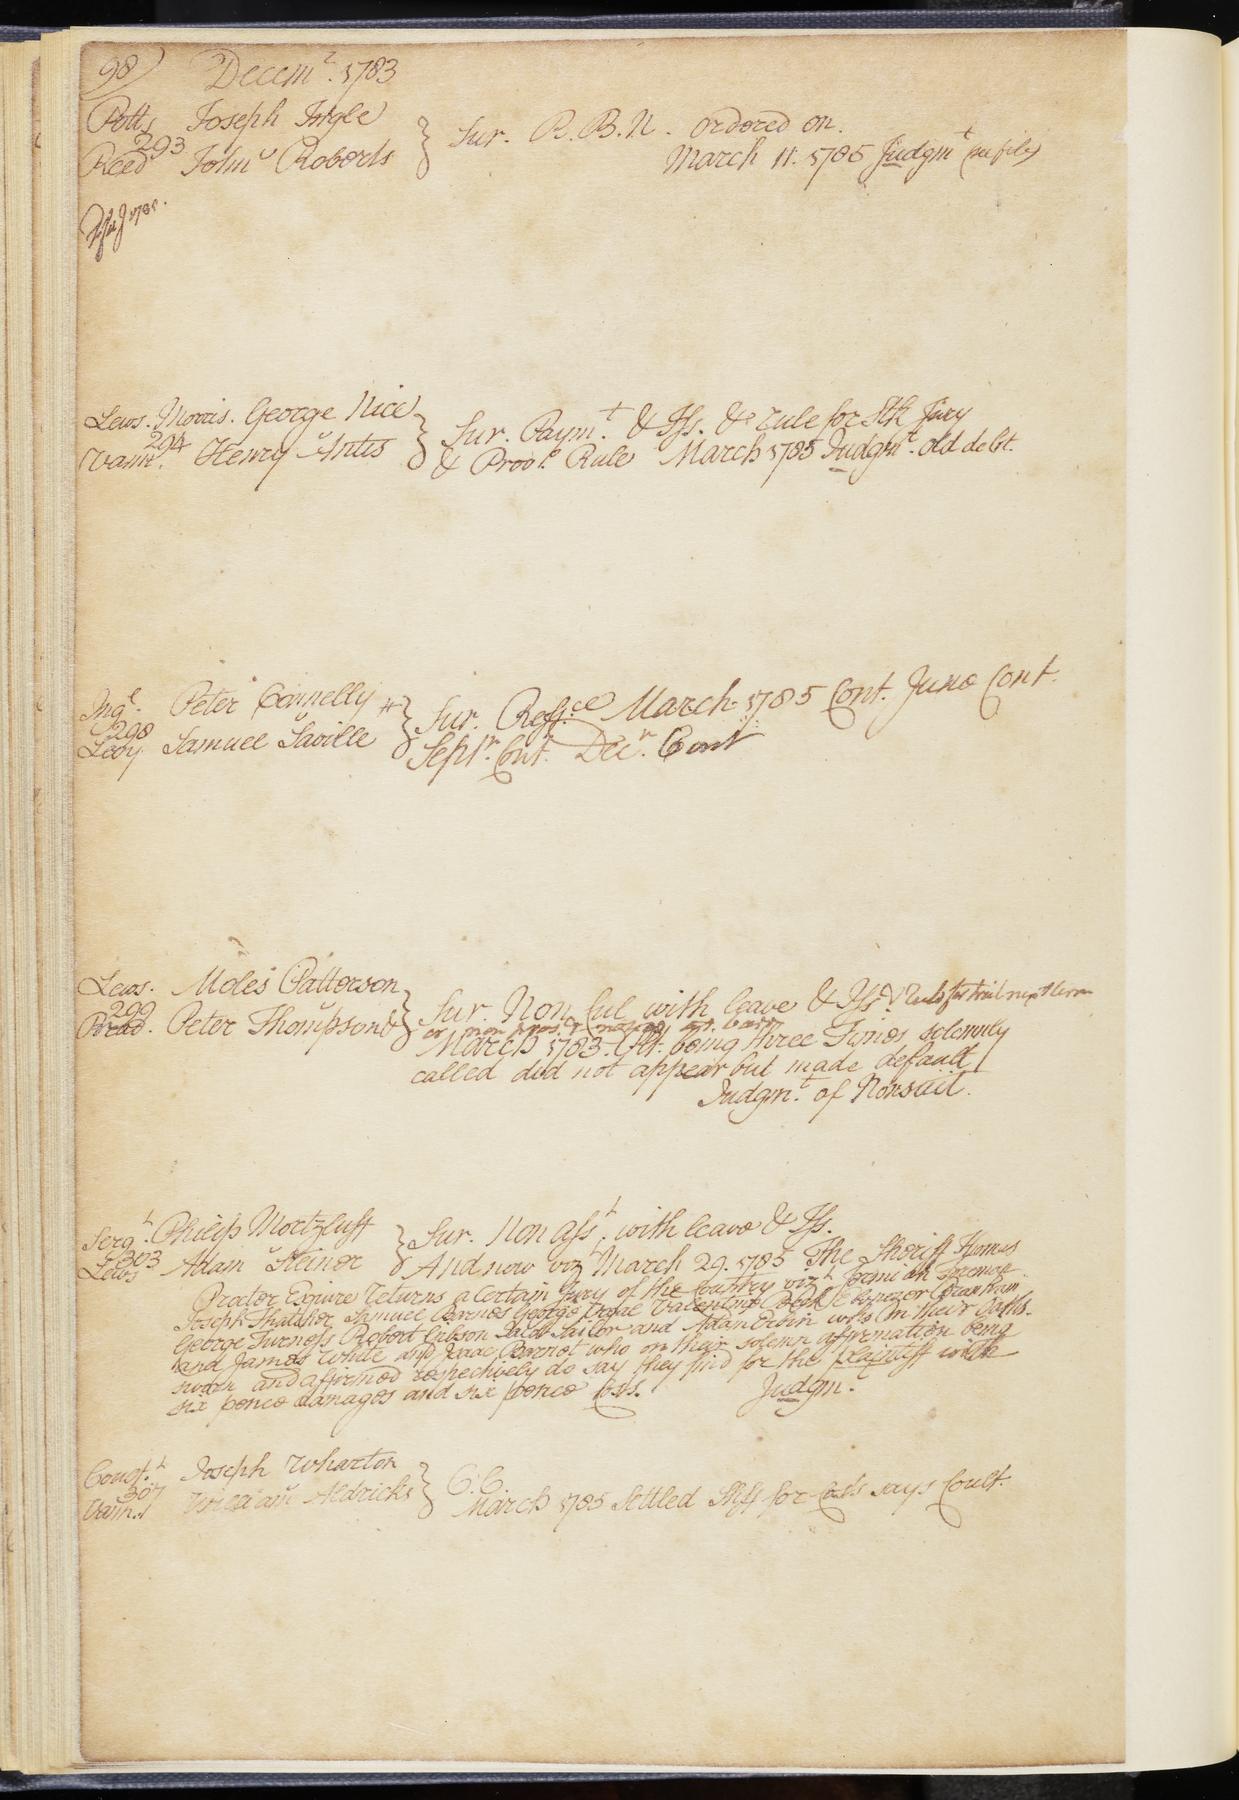 98) Decemr. 1783
Potts Joseph Ingle
293
Reed John Roberts } Sur. R. B. N. ordered on.
March 11. 1785 Judgmt (see file)
Lews. Morris. George Nice
294
Vann. Henry Antis } Sur. Paymt. & Iss. & rule for Stk Jury
& Proo. Rule March 1785 Judgmt. old debt.
Ingl. Peter Connelly
298
Levy. Samuel Saville } Sur. Reffce March 1785 Cont. June Cont.
Septr. Cont. Decr. Cont
Lews. Moles Patterson
299
Brad. Peter Thompson } Sur. Non Cul with leave & Iss. & Rule for trial next term
or non pros.
March 1783. Plt. being three Times solemnly
called did not appear but made default
Judgmt. of Nonsuit.
Sergt. Philip Mortzluft
303
Lews Adam Steiner } Sur. Non Asst. with leave & Iss.
And now vizt March 29. 1785 The Sheriff Thomas
Proctor Esquire returns a Certain Jury of the Country vizt Jeremiah
Joseph Thatcher Samuel Barnes George Vogae Valentine Ebenezer Branham
George Furness Robert Gibson Jacob Sailor and Adam Erbin who on their Oaths.
and James White and Isaac Barnot who on their solemn affirmation being
sworn and affirmed respectively do say they find for the plaintiff with
six pence damages and six pence Costs. Judgm.
Const. Joseph Wharton
307
Vann. William Aldricks } C.C.
March 1785 Settled Plff for Costs says Coult.